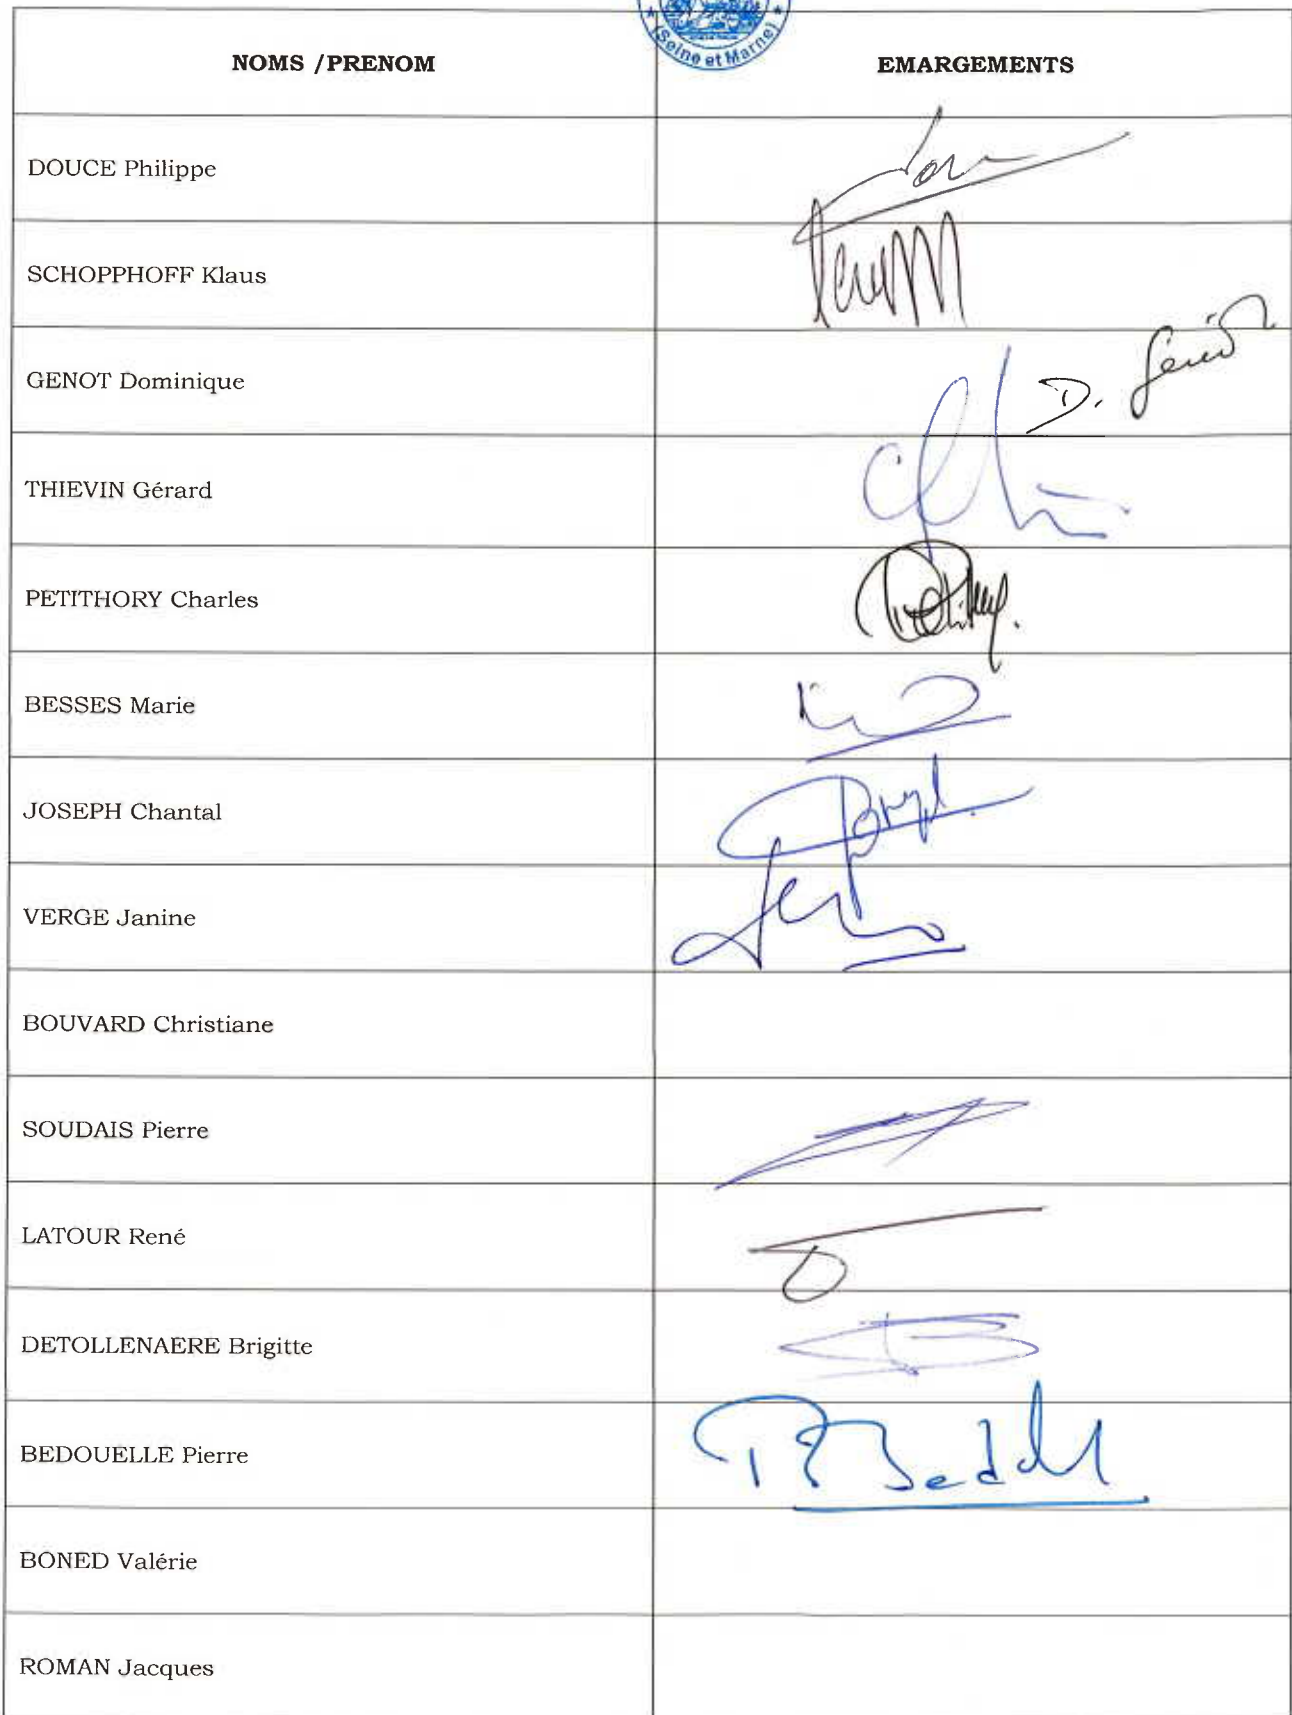 (Seine et Marne)
NOMS /PRENOM EMARGEMENTS
DOUCE Philippe
SCHOPPHOFF Klaus
GENOT Dominique D. Genot
THIEVIN Gérard
PETITHORY Charles
BESSES Marie
JOSEPH Chantal
VERGE Janine
BOUVARD Christiane
SOUDAIS Pierre
LATOUR René
DETOLLENAERE Brigitte
BEDOUELLE Pierre
BONED Valérie
ROMAN Jacques